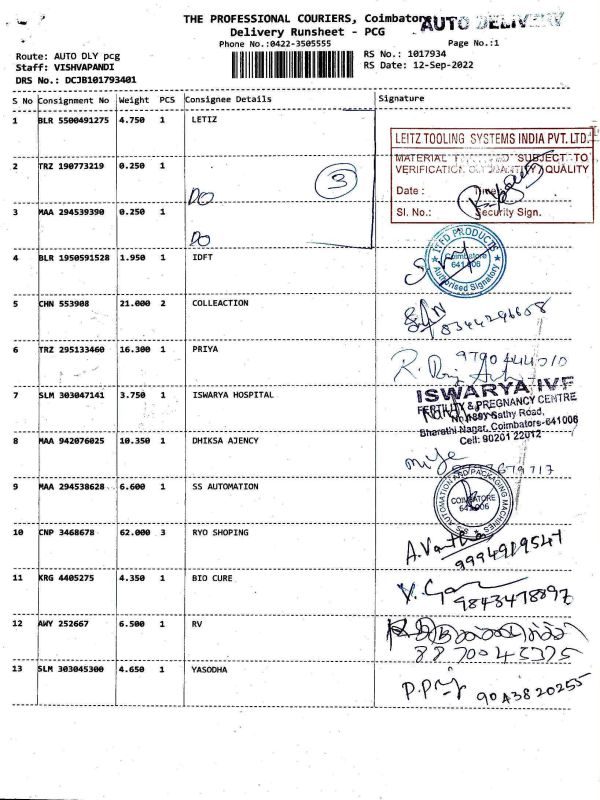 THE PROFESSIONAL COURIERS, Coimbatore
AUTO DELIVERY
Delivery Runsheet - PCG
Phone No.:0422-3505555
Page No.:1
Route: AUTO DLY pcg
RS No.: 1017934
Staff: VISHVAPANDI
RS Date: 12-Sep-2022
DRS No.: DCJB101793401
S No Consignment No Weight PCS Consignee Details Signature
1 BLR 5500491275 4.750 1 LETIZ
LEITZ TOOLING SYSTEMS INDIA PVT. LTD.
MATERIAL SUBJECT TO
VERIFICATION QUALITY
Date : Time
Sl. No.: Security Sign.
2 TRZ 190773219 0.250 1
DO
3
3 MAA 294539390 0.250 1
DO
4 BLR 1950591528 1.950 1 IDFT
PRODUCTS
Coimbatore
641 006
Authorised Signatory
5 CHN 553908 21.000 2 COLLEACTION
6 TRZ 295133460 16.300 1 PRIYA
7 SLM 303047141 3.750 1 ISWARYA HOSPITAL
ISWARYA IVF
FERTILITY & PREGNANCY CENTRE
Sathy Road,
Bharathi Nagar, Coimbatore-641006
Cell: 90201 22012
8 MAA 942076025 10.350 1 DHIKSA AJENCY
9 MAA 294538628 6.600 1 SS AUTOMATION
SS AUTOMATION AND PACKAGING MACHINES
COIMBATORE
641 006
10 CNP 3468678 62.000 3 RYO SHOPING
9994919547
11 KRG 4405275 4.350 1 BIO CURE
9843478897
12 AWY 252667 6.500 1 RV
13 SLM 303045300 4.650 1 YASODHA
9043820255